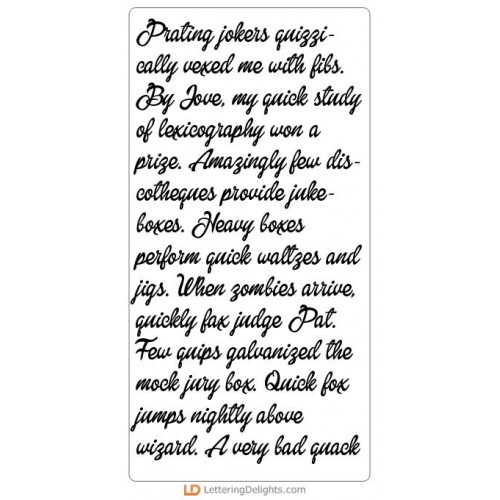 Prating jokers quizzi-
cally vexed me with fibs.
By Jove, my quick study
of lexicography won a
prize. Amazingly few dis-
cotheques provide juke-
boxes. Heavy boxes
perform quick waltzes and
jigs. When zombies arrive,
quickly fax judge Pat.
Few quips galvanized the
mock jury box. Quick fox
jumps nightly above
wizard. A very bad quack
LD LetteringDelights.com